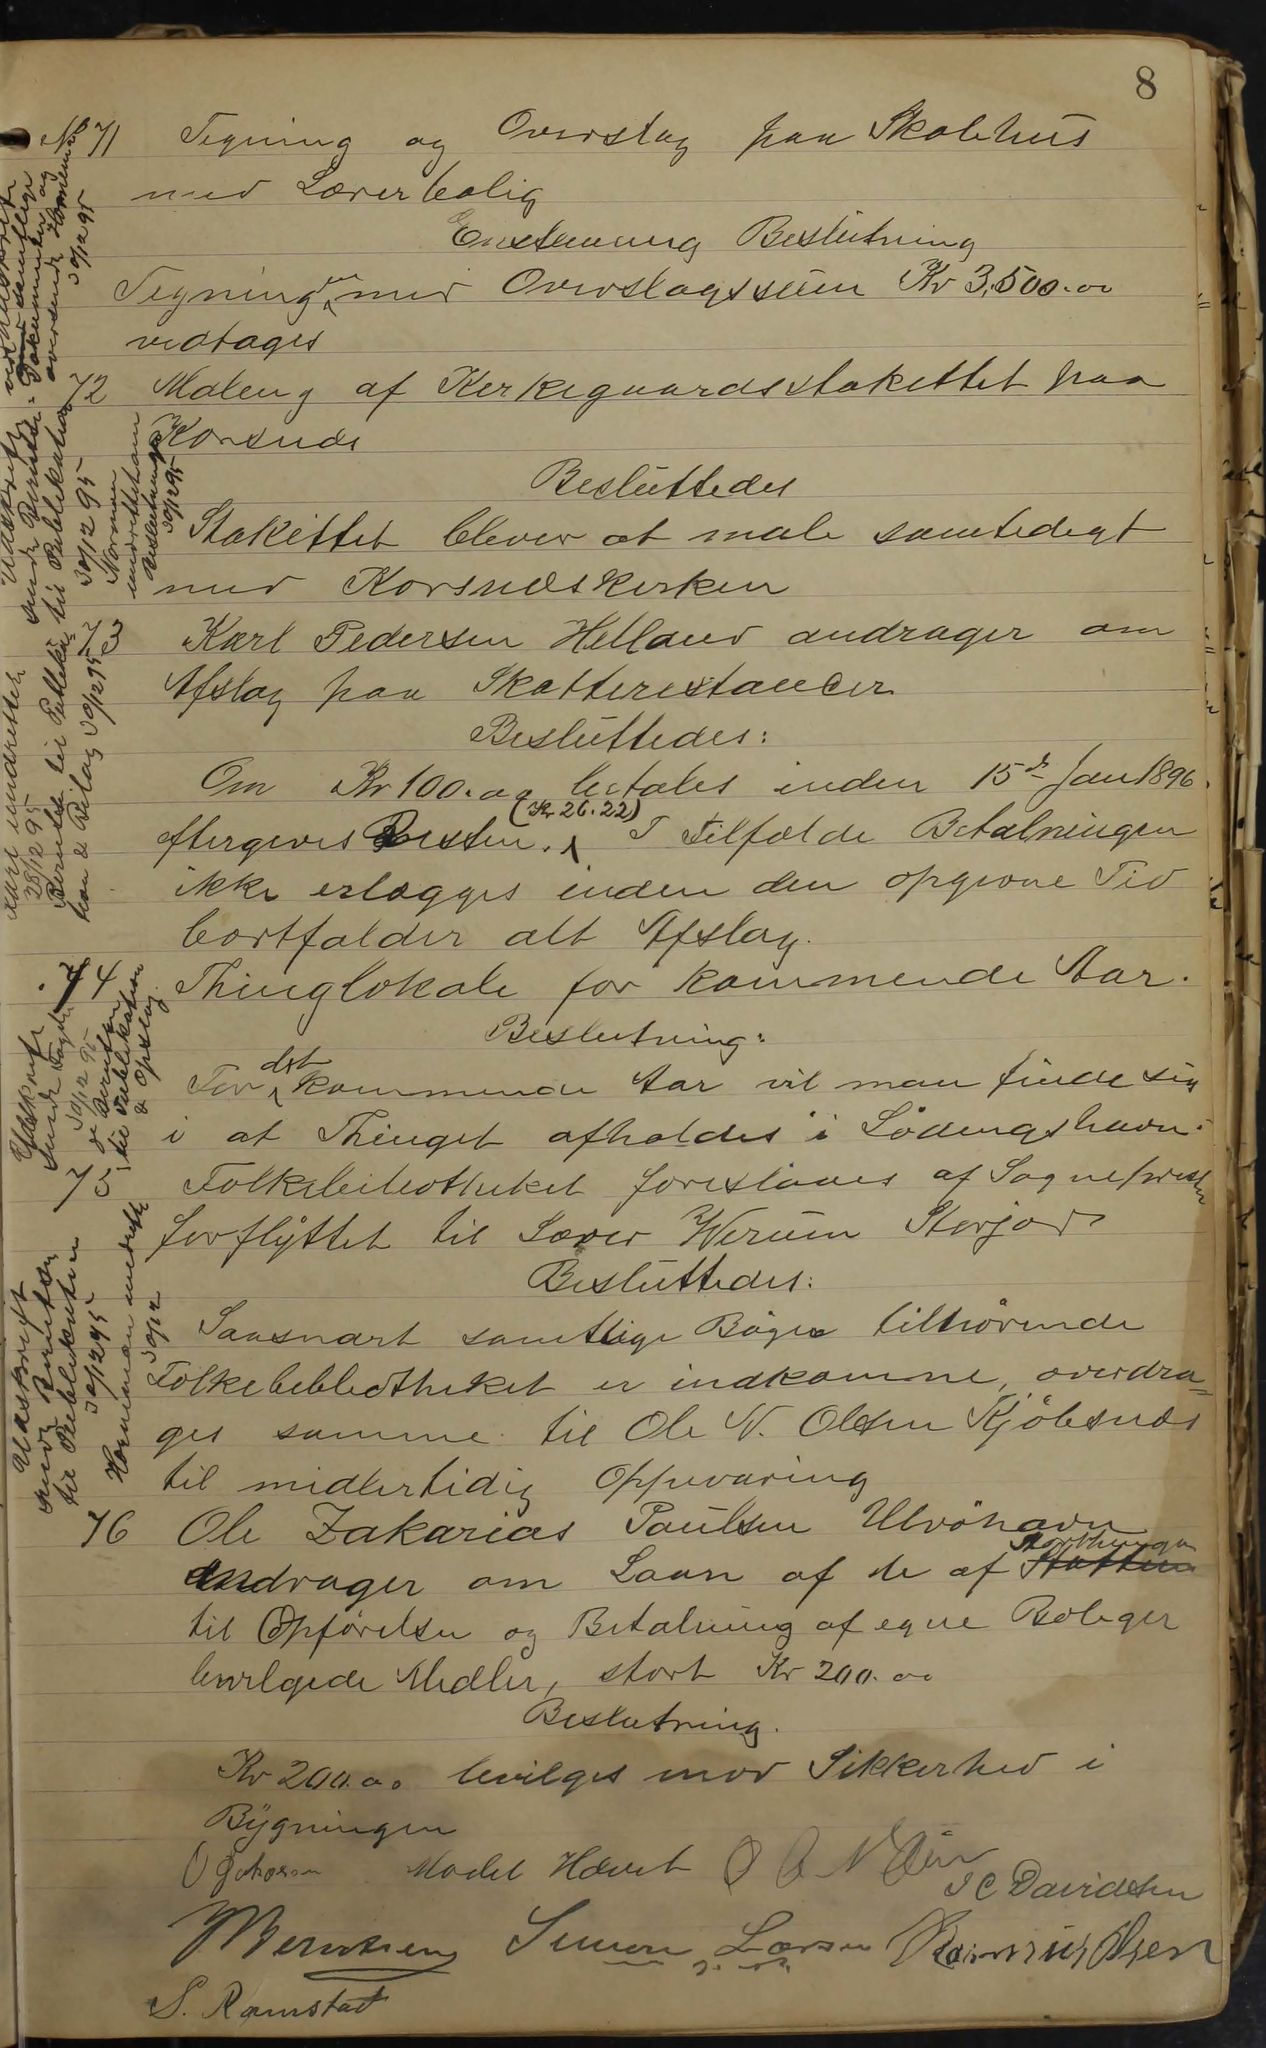 8
No 71 Tegning og Overslag paa Skolehus
med Lærerbolig
Enstemmig Beslutning
Tegningen med Overslagssum Kr 3,500.00
vedtages
72 Maleng af Kerkegaardsstakettet paa
Korsnæs
Besluttedes
Stakettet blever at male samtedigt
med Korsnæskerken
73 Karl Pedersen Helland andrager om
Afslag paa Skatterestancer
Besluttedes:
Om Kr 100.00 betales inden 15de Jan 1896
eftergives Resten. (Kr 26.22) I Tilfælde Betalningen
ikke erlægges inden den opgivne Tid
bortfalder alt Afslag.
74 Thinglokale for kommende Aar.
Beslutning:
For det kommende Aar vil man finde sig
i at Thinget afholdes i Lödingshavn.
75 Folkebibliotheket foreslaaes af Sognepresten
forflyttet til Lærer Werum Storjord
Besluttedes:
Saasnart samtlige Bøger tilhørende
Folkebibliotheket er indkomne, overdra=
ges samme til Ole N. Olsen Kjöbsnæs
til midlertidig Oppevaring
76 Ole Zakarias Paulsen Ulvöhavn
andrager om Laan af de af Storthinget
til Opförelse og Betalning af egne Boleger
bevilgede Medler, stort Kr 200.00
Beslutning.
Kr 200.00 bevilges mod Sikkerhed i
Bygningen
O Jakobsen Madel Hævet
J C Davidsen
Berntsen Simon Larsen Rasmus Olsen
S. Ramstad
Udskrift
sende Berntsen
til Publikation
30/12 95
Norman
underrettet om
Beslutningen
30/12 95
Dokumenter og
oversendt Horneman
30/12 95
Karl undrettet
28/12 95
30/12 95
Udskrift
sende Fogden
30/12 95
til Publikation
& Opslag
Udskrift
sende Berntsen
til Publikation
30/12 95
Horneman undrettet
30/12